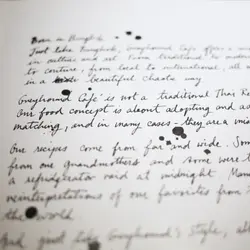 Born in Bangkok
Just like Bangkok, Greyhound Cafe offers a
in culture and art. From traditional to modern
to couture, from local to international, all
in a beautiful chaotic way
Greyhound Café is not a traditional Thai Re
Our food concept is about adopting and a
matching, and in many cases - they are a mix
Our recipes come from far and wide. Som
from our grandmothers and some were t
a refridgerator raid at midnight. Many
reinterpretations of our favorites from
the world
And just like Greyhound's Style,